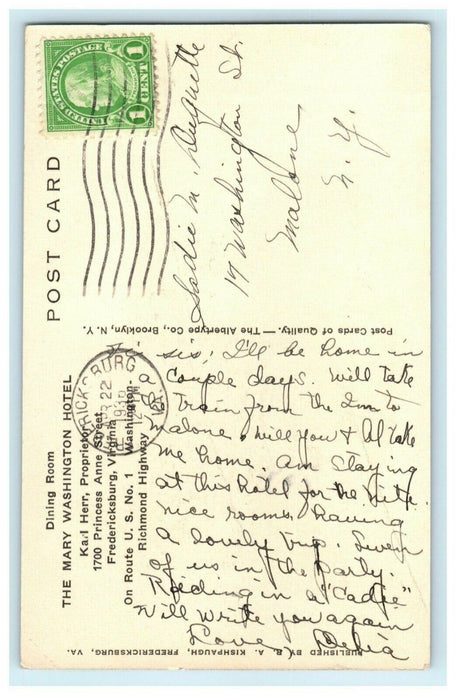 POST CARD
UNITED STATES POSTAGE
1 CENT 1
Dining Room
THE MARY WASHINGTON HOTEL
Karl Herr, Proprietor
1700 Princess Anne Street
Fredericksburg, Virginia
On Route U. S. No. 1 Washington-
Richmond Highway
RICKSBURG
APR 22
VA.
Sadie M. Duquette
17 Washington St.
Malone
N. Y.
Post Cards of Quality. — The Albertype Co., Brooklyn, N. Y.
sis, I'll be home in
a couple days. Will take
train from the Inn to
Malone. Will you & Al take
me home. Am staying
at this hotel for the nite.
nice rooms. Having
a lovely trip. Seven
of us in the party.
Riding in a "Cadie"
Will write you again
Love Delia
PUBLISHED BY R. A. KISHPAUGH, FREDERICKSBURG, VA.